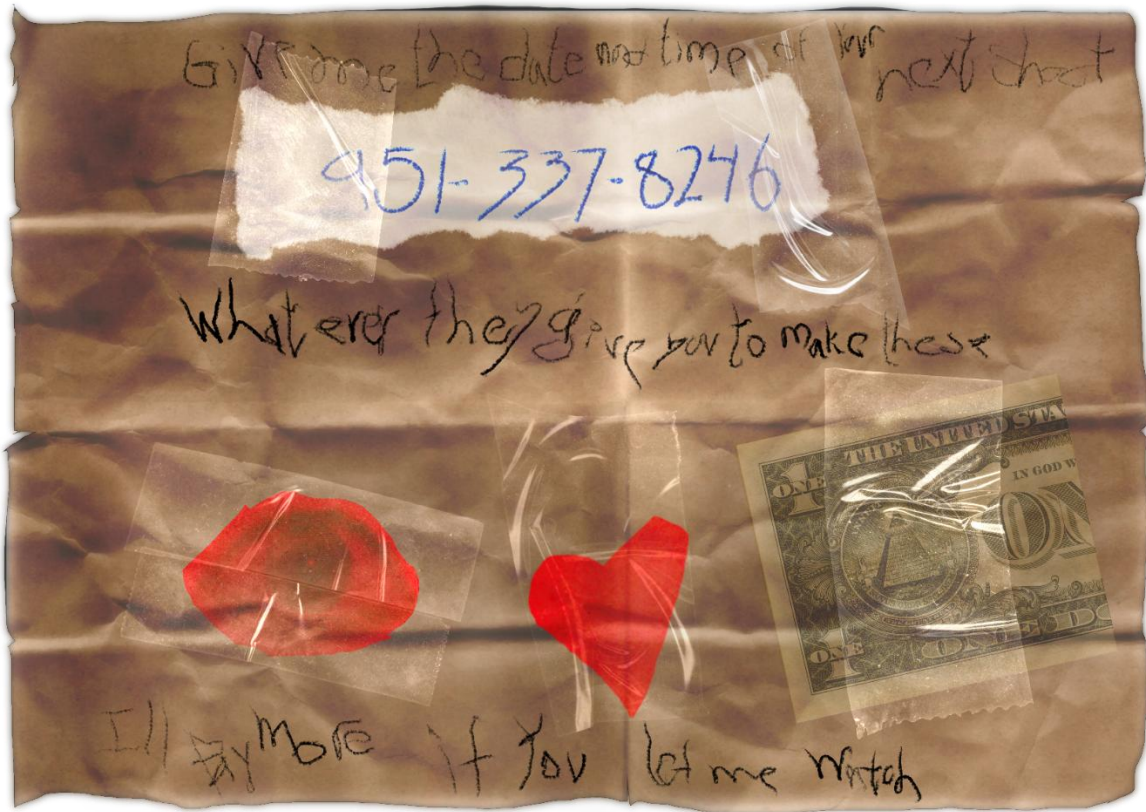 Give me the date and time of your next shoot
951-337-8246
What ever they give you to make these
THE UNITED STA
ONE
IN GOD W
ON
ONE
ONE DO
I'll pay more if you let me watch